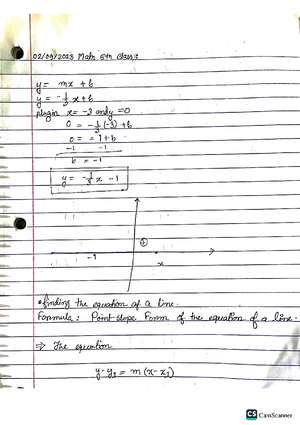 02/09/2023 Math 5th Class:
y = mx + b
y = -1/3 x + b
plugin x = -3 and y = 0
0 = -1/3 (-3) + b
0 = 1 + b
-1 -1
b = -1
y = -1/3 x - 1
x
• finding the equation of a line.
Formula: Point-slope Form of the equation of a line.
⇒ The equation
y-y₁ = m(x-x₁)
CS CamScanner